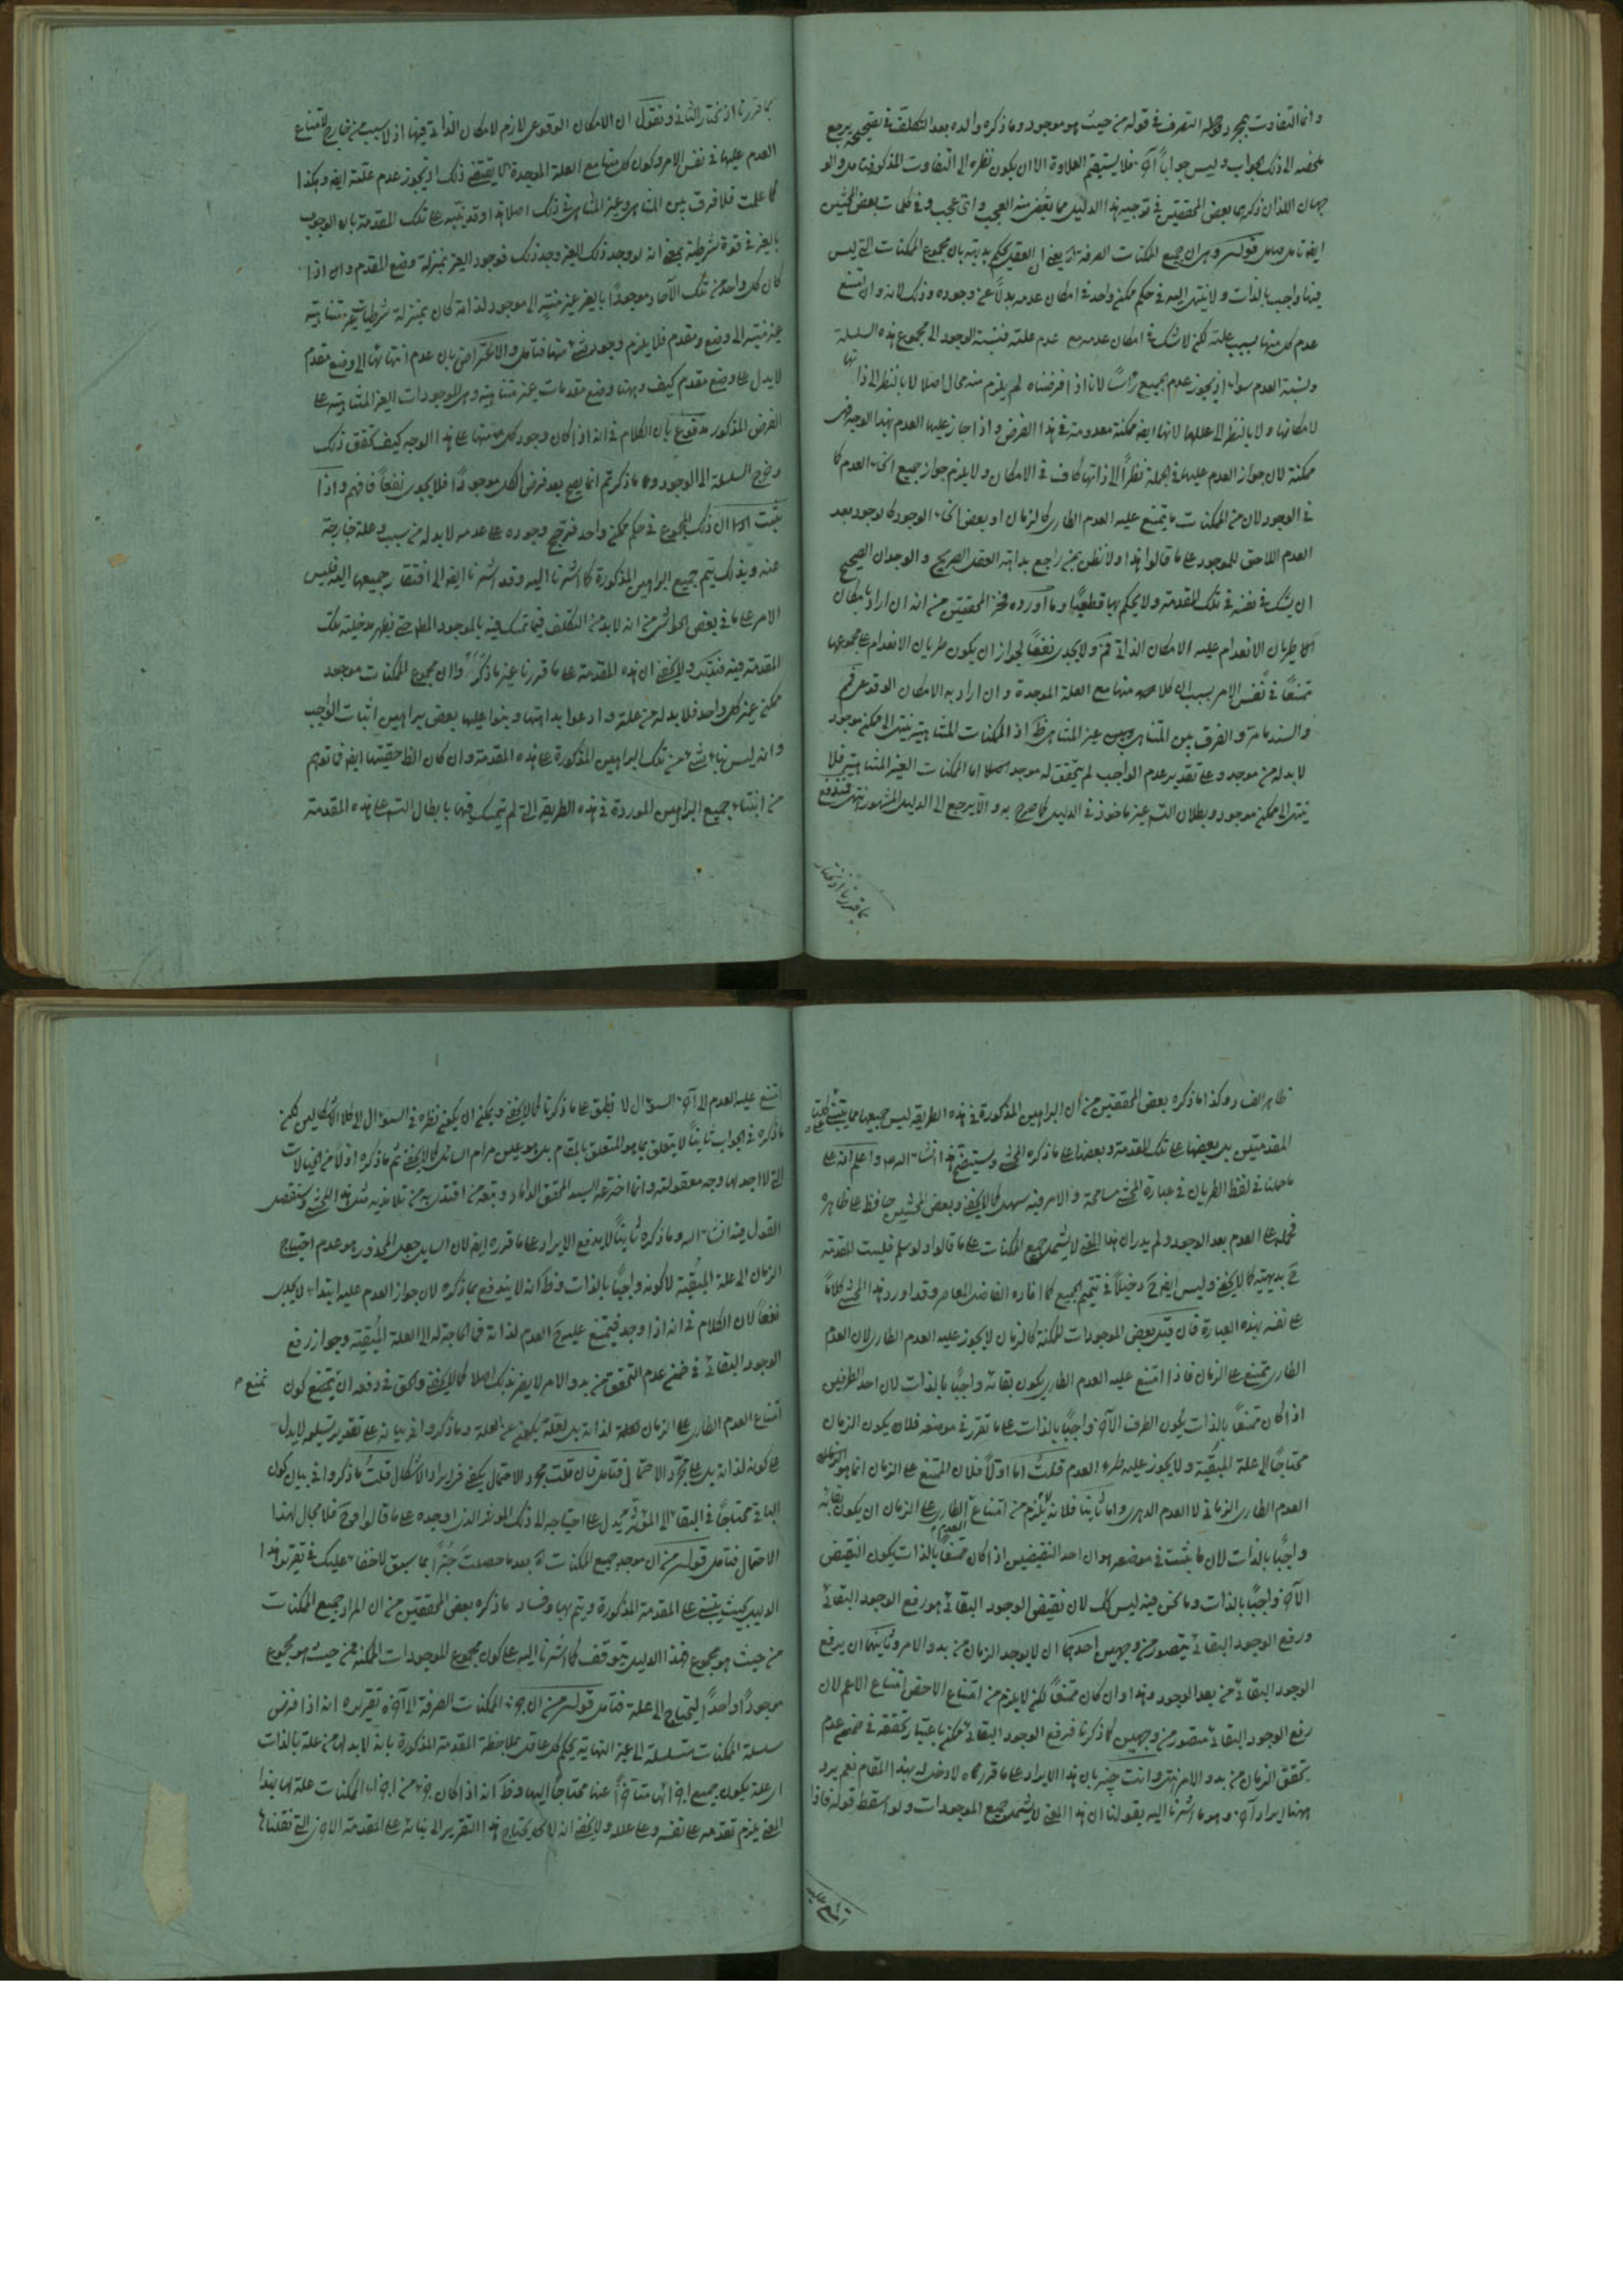 وانما التفاوت بمجرد التصرف في قوله من حيث هو موجود وما ذكره والده بعد التكلف في تصحيحه يرجع
ملخصه الى ذلك الجواب وليس جواباً آخر فلا يستقيم العلاوة الا ان يكون نظره الى التفاوت المذكور
جهان اللذان ذكرهما بعض المحققين في توجيه هذا الدليل مما يقضى منه العجب واى عجب وفي كلمات بعض المحشين
ايضا قوله وهو ان جميع الممكنات الصرفة الخ يعنى ان العقل يحكم بديهته بان مجموع الممكنات التي ليس
فيها واجب بالذات ولا ينتهى اليه في حكم ممكن واحد في امكان عدمه بدلاً عن وجوده وذلك لانه وان امتنع
عدم كل منها بسبب علته لكن لا شك في امكان عدمه مع عدم علته فنسبة الوجود الى مجموع هذه السلسلة
ونسبة العدم سواء اذ يجوز عدم الجميع رأساً لانا اذا فرضناه لم يلزم منه محال اصلا لا بالنظر الى ذاتها
لامكانها ولا بالنظر الى عللها لانها ايضا ممكنة معدومة في هذا الفرض واذا جاز عليها العدم بهذا الوجه فهى
ممكنة لان جواز العدم عليها في الجملة نظراً الى ذاتها كاف في الامكان ولا يلزم جواز جميع انحاء العدم كما
في الوجود لان من الممكنات ما يمتنع عليه العدم الطارى كالزمان او بعض انحاء الوجود كالوجود بعد
العدم اللاحق للموجود على ما قالوا هذا ولا نظن بمن راجع بداهة العقل الصريح والوجدان الصحيح
ان يشك في نفسه في تلك المقدمة ولا يحكم بها قطعياً وما اورده فخر المحققين من انه ان اراد بامكان
طريان الانعدام عليه الامكان الذاتى فم ولا يجدى نفعاً لجواز ان يكون طريان الانعدام على مجموعها
ممتنعاً في نفس الامر بسبب ان كلا منها مع العلة الموجدة وان اراد به الامكان الوقوعى فم
والسند ما مر والفرق بين المتناهى وبين غير المتناهى ظ اذ الممكنات المتناهية ينتهى الى ممكن موجود
لا بد له من موجد وعلى تقدير عدم الواجب لم يتحقق له موجد اصلا اما الممكنات الغير المتناهية فلا
ينتهى الى ممكن موجود وبطلان التس غير ماخوذ في الدليل كما صرح به والا يرجع الى الدليل المشهور انتهى فمندفع
بما قررنا اذ نختار
بما قررنا اذ نختار الثانى ونقول ان الامكان الوقوعى لازم لامكان الذاتى فيها اذ لا سبب من خارج لامتناع
العدم عليها في نفس الامر وكون كل منها مع العلة الموجدة لا يقتضى ذلك اذ يجوز عدم علته ايضا وهكذا
كما علمت فلا فرق بين المتناهى وغير المتناهى في ذلك اصلا هذا وقد ينبه على تلك المقدمة بان الوجوب
بالغير في قوة شرطية بمعنى انه لو وجد ذلك الغير وجد ذلك فوجود الغير بمنزلة وضع المقدم وان اذا
كان كل واحد من تلك الآحاد موجوداً بالغير غير منته الى موجود لذاته كان بمنزلة شرطيات غير متناهية
غير منتهية الى وضع مقدم فلا يلزم وجود شىء منها فتامل والاعتراض بان عدم انتهائها الى وضع مقدم
لا يدل على وضع مقدم كيف وهنا وضع مقدمات غير متناهية وهى الموجودات الغير المتناهية على
الفرض المذكور مدفوع بان الكلام في انه اذا كان وجود كل منها على هذا الوجه كيف تحقق ذلك
وخرج السلسلة الى الوجود وما ذكرتم انما يصح بعد فرض الكل موجوداً فلا يجدى نفعاً فافهم واذا
ثبت ان ذلك المجموع في حكم ممكن واحد فترجح وجوده على عدمه لا بد له من سبب وعلة خارجة
عنه وبذلك يتم جميع البراهين المذكورة كما اشرنا اليه وقد اشرنا ايضا الى افتقار جميعها اليه فليس
الامر على ما في بعض الحواشى من انه لا بد من التكلف فيما تمسك فيه بالموجود المطلق حتى يظهر مدخلية تلك
المقدمة فيه فتذكر ولا يخفى ان هذه المقدمة على ما قررنا غير ما ذكر وان مجموع الممكنات موجود
ممكن غير كل واحد فلا بد له من علة وادعوا بداهتها وبنوا عليها بعض براهين اثبات الواجب
وانه ليس بناء شىء من تلك البراهين المذكورة على هذه المقدمة وان كان الظ حقيتها ايضا فما توهم
من ابتناء جميع البراهين الموردة في هذه الطريقة التي لم يتمسك فيها بابطال التس على هذه المقدمة
ظاهر الفساد وكذا ما ذكره بعض المحققين من ان البراهين المذكورة في هذه الطريقة ليس جميعها مما يبتنى على كلتا
المقدمتين بل بعضها على تلك المقدمة وبعضها على ما ذكره المحشى وسيتضح هذا انشاء الله واعلم انه على
ما حملنا في لفظ الطريان في عبارة المحشى مسامحة والامر فيه سهل كما لا يخفى وبعض المحشين حافظ على ظاهره
فحمله على العدم بعد الوجود ولم يدر ان هذا المعنى لا يشمل جميع الممكنات على ما قالوا ولو سلم فليست المقدمة
ح بديهية كما لا يخفى وليس ايضا ح دخيلاً في تتميم الجميع كما افاده الفاضل المعاصر وقد اورد هذا المحشى كلاماً
على نفسه بهذه العبارة فان قيل بعض الموجودات الممكنة كالزمان لا يجوز عليه العدم الطارى لان العدم
الطارى ممتنع على الزمان فاذا امتنع عليه العدم الطارى يكون بقائه واجباً بالذات لان احد الطرفين
اذا كان ممتنعاً بالذات يكون الطرف الآخر واجباً بالذات على ما تقرر في موضعه فلا يكون الزمان
محتاجاً الى علة المبقية ولا يجوز عليه طرء العدم قلت اما اولاً فلان الممتنع على الزمان انما هو
العدم الطارى الزمانى لا العدم الدهرى واما ثانيا فلانه لا يلزم من امتناع العدم الطارى على الزمان ان يكون بقائه
واجباً بالذات لان ما يثبت في موضعه هو ان احد النقيضين اذا كان ممتنعاً بالذات يكون النقيض
الآخر واجباً بالذات وما نحن فيه ليس كك لان نقيض الوجود البقائى هو رفع الوجود البقائى
ورفع الوجود البقائى يتصور من وجهين احدهما ان لا يوجد الزمان من بدو الامر وثانيهما ان يرفع
الوجود البقائى من بعد الوجود وهذا وان كان ممتنعاً لكن لا يلزم من امتناع الاخص امتناع الاعم لان
رفع الوجود البقائى متصور من وجهين كما ذكرنا فرفع الوجود البقائى ممكن باعتبار تحققه في ضمن عدم
تحقق الزمان من بدو الامر انتهى وانت خبير بان هذا الايراد على ما قررناه لا دخل له بهذا المقام نعم يرد
ههنا ايراد آخر وهو ما اشرنا اليه بقولنا ان هذا المعنى لا يشمل جميع الموجودات ولو اسقط قوله فاذا
امتنع عليه العدم الى آخر السؤال لا نطبق على ما ذكرنا كما لا يخفى ويمكن ان يكون نظره في السؤال الى ذلك لكن
ما ذكره في الجواب ثانياً لا يتعلق بما هو المتعلق بالمقام بل هو على مرام السائل كما لا يخفى ثم ما ذكره اولاً من الخيالات
التى لا اجد لها وجه معقولية وانما اخترعه السيد المحقق الداماد وتبعه من اقتدى به من تلامذته مثل هذا المحشى وسنفصل
القول فيه انشاء الله وما ذكره ثانياً لا يدفع الايراد على ما قرره ايضا لان السايل جعل المحذور هو عدم احتياج
الزمان الى علة المبقية لا كونه واجباً بالذات وظ انه لا يندفع بما ذكره لان جواز العدم عليه ابتداء لا يجدى
نفعاً لان الكلام في انه اذا وجد فيمتنع عليه ح العدم لذاته فما الحاجة له الى العلة المبقية وجواز رفع
الوجود البقائى في ضمن عدم التحقق من بدو الامر لا يضر بذلك اصلا كما لا يخفى والحق في دفعه ان يمنع كون
امتناع العدم الطارى على الزمان لذاته بل لعلة يكون عن العلة وما ذكروا في بيانه على تقدير تسليمه لا يدل
على كونه لذاته بل على مجرد الاحتمال فتامل فان قلت مجرد الاحتمال يكفى في ايراد الاشكال قلت ما ذكروا في بيان كون
الباقى محتاجاً في البقاء الى المؤثر يدل على احتياجه الى ذلك المؤثر الذى اوجده على ما قالوا وح فلا مجال لهذا
الاحتمال فتامل قوله من ان موجد جميع الممكنات الخ بعد ما حصلت خُبراً بما سبق لا خفاء عليك في تقرير هذا
الدليل بحيث يبتنى على المقدمة المذكورة ويتم بها وفساد ما ذكره بعض المحققين من ان المراد جميع الممكنات
من حيث هو مجموع فهذا الدليل يتوقف كما اشرنا اليه على كون مجموع الموجودات الممكنة من حيث هو مجموع
موجوداً واحداً ليحتاج الى علة فتامل قوله من ان جزء الممكنات الصرفة الى آخره تقريره انه اذا فرض
سلسلة الممكنات متسلسلة الى غير النهاية يحكم كل عاقل بملاحظة المقدمة المذكورة بانه لا بد لها من علة بالذات
اى علة يكون جميع اجزائها متاخراً عنها محتاجاً اليها وظ انه اذا كان جزء من اجزاء الممكنات علة لها بهذا
المعنى يلزم تقدمه على نفسه وعلى علله ولا يخفى انه لا يحتاج هذا التقرير الى بنائه على المقدمة الاخرى التي نقلناها